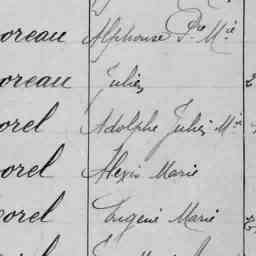 oreau Alphonse Pre Mie
oreau Jules
orel Adolphe Jules Mie
orel Alexis Marie
orel Eugène Marie
orel